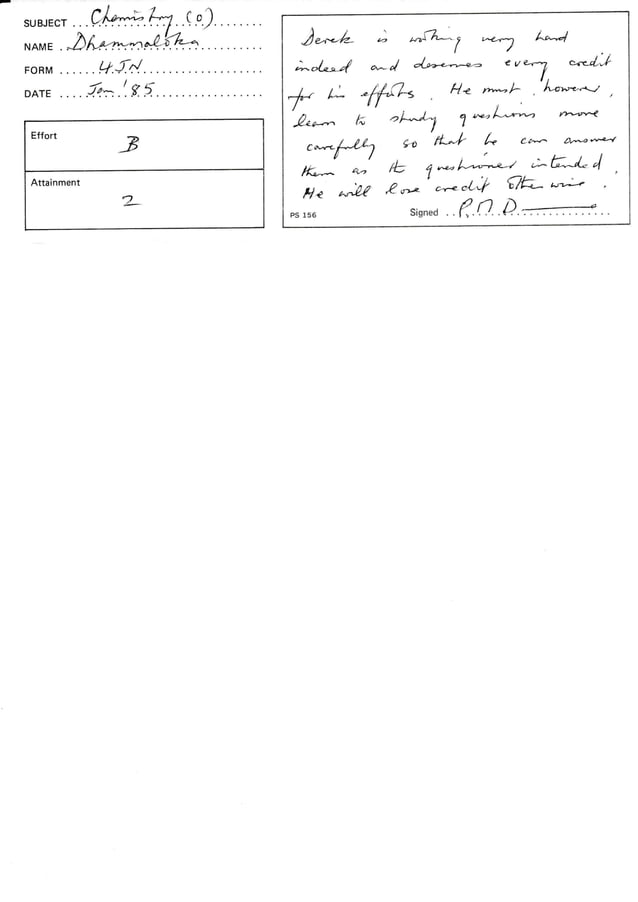 SUBJECT ... Chemistry (O) .........
NAME . Dhammaloka .........
FORM ...... 4JN .........
DATE ..... Jan '85 .........
Effort
B
Attainment
2
Derek is working very hard
indeed and deserves every credit
for his efforts. He must, however,
learn to study questions more
carefully so that he can answer
them as the questioner intended.
He will lose credit otherwise.
PS 156
Signed .. P.M.D